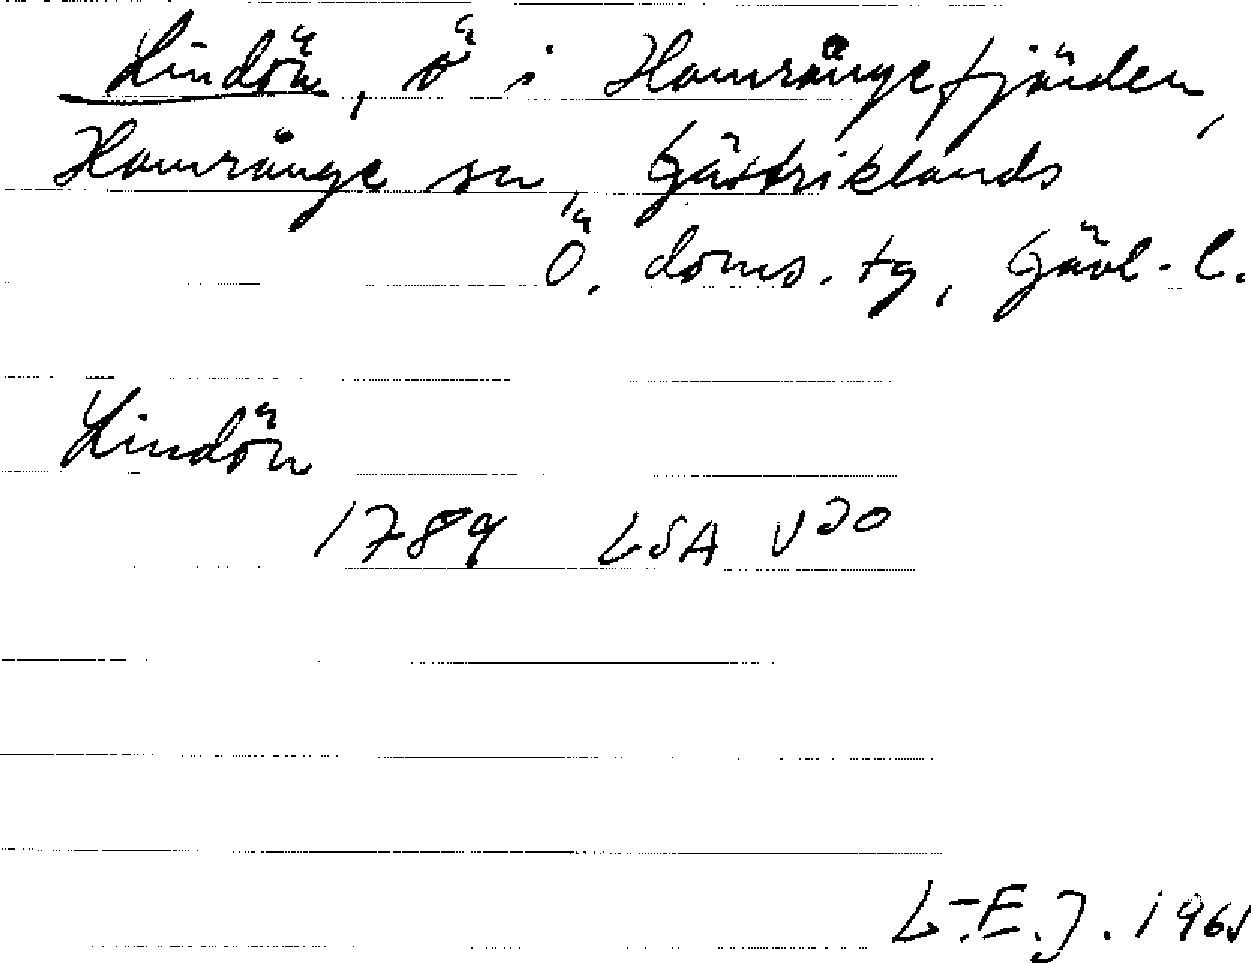 Lindön, ö i Hamrångefjärden,
Hamrånge sn, Gästriklands
Ö. doms. tg, Gävl. l.
Lindön
1789 LSA V20
L-E.J. 1961